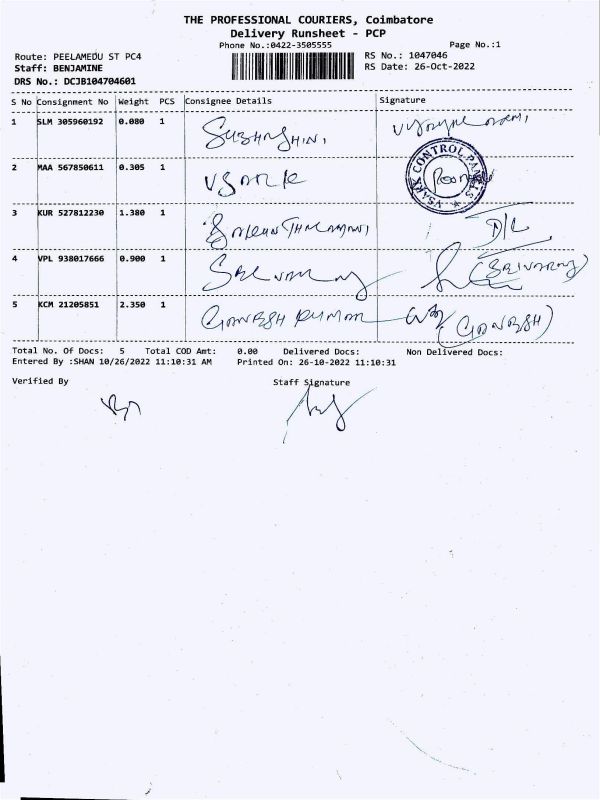 THE PROFESSIONAL COURIERS, Coimbatore
Delivery Runsheet - PCP
Phone No.:0422-3505555
Page No.:1
Route: PEELAMEDU ST PC4
RS No.: 1047046
Staff: BENJAMINE
RS Date: 26-Oct-2022
DRS No.: DCJB104704601
S No Consignment No Weight PCS Consignee Details Signature
1 SLM 305960192 0.080 1
2 MAA 567850611 0.305 1
VSARK CONTROL PANELS
3 KUR 527812230 1.380 1
4 VPL 938017666 0.900 1 (SELVARAJ)
5 KCM 21205851 2.350 1 GANESH KUMAR (GANESH)
Total No. Of Docs: 5 Total COD Amt: 0.00 Delivered Docs: Non Delivered Docs:
Entered By :SHAN 10/26/2022 11:10:31 AM Printed On: 26-10-2022 11:10:31
Verified By Staff Signature